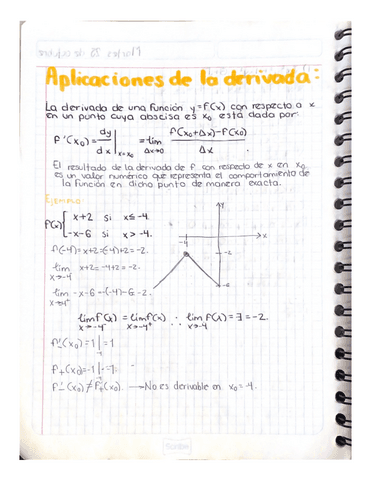 Aplicaciones de la derivada:
La derivada de una función y=f(x) con respecto a x
en un punto cuya abscisa es x₀ está dado por:
f'(x₀)= dy/dx |x=x₀ = lim Δx→0 f(x₀+Δx)-f(x₀) / Δx
El resultado de la derivada de f con respecto de x en x₀
es un valor numérico que representa el comportamiento de
la función en dicho punto de manera exacta.
Ejemplo
f(x) { x+2 si x≤-4.
-x-6 si x>-4.
y
x
-4
-2
-6
f(-4)=x+2=(-4)+2=-2.
lim x→-4⁻ x+2=-4+2=-2.
lim x→-4⁺ -x-6=-(-4)-6=-2
lim f(x) x→-4⁻ = lim f(x) x→-4⁺ ∴ lim f(x) x→-4 = ∃ = -2.
f'₋(x₀)=1|=1
f'₊(x₀)=-1|=-1.
f'₋(x₀)≠f'₊(x₀). → No es derivable en x₀=-4.
Scribe